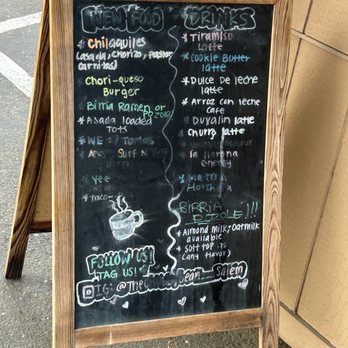 NEW FOOD
Chilaquiles
(asada, Chorizo, pastor
carnitas)
Chori-queso
Burger
Birria Ramen or
Pozole
Asada loaded
tots
Surf N
yee
Taco
FOLLOW US!
TAG US!
IG: @The
Salem
DRINKS
Tiramiso
latte
Cookie Butter
latte
Dulce De leche
latte
Arroz con leche
cafe
Duvalin latte
Churro latte
la llorona
energy
Horchata
BIRRIA
POZOLE!!!
Almond milk/Oatmilk
available
Soft top .75
(any flavor)